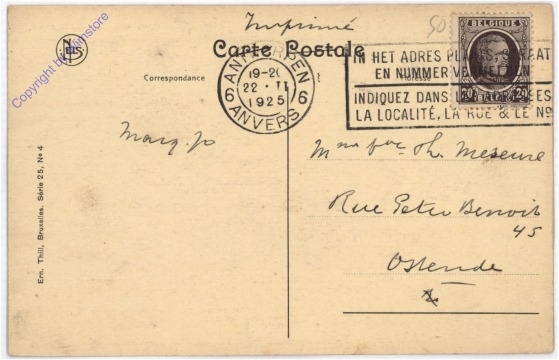 Imprimé
50
BELGIQUE
Carte Postale
ANTWERPEN
19-20
22·II
1925
6 6
ANVERS
IN HET ADRES
EN NUMMER
INDIQUEZ DANS
LA LOCALITÉ, LA RUE & LE No
20 20
Correspondance
Marg. Jo
Th. Meseure
Rue Peter Benoit
45
Ostende
Ern. Thill, Bruxelles. Série 25, No 4
Copyright by filmstore